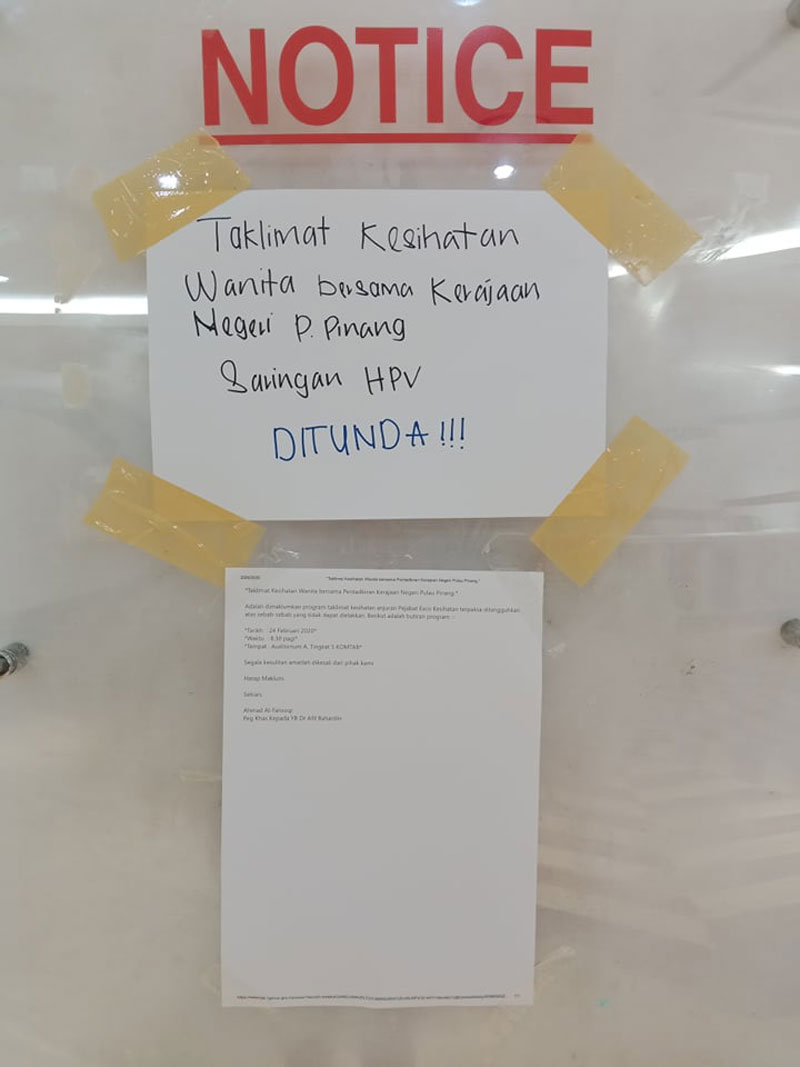 NOTICE
Taklimat Kesihatan
Wanita bersama Kerajaan
Negeri P. Pinang
Saringan HPV
DITUNDA!!!
"Taklimat Kesihatan Wanita bersama Perdadkiran Kerajaan Negeri Pulau Pinang."
*Taklimat Kesihatan Wanita bersama Kerajaan Negeri Pulau Pinang.*
Adalah dimaklumkan program taklimat kesihatan anjuran Pejabat Exco Kesihatan terpaksa ditangguhkan
atas sebab-sebab yang tidak dapat dielakkan. Berikut adalah butiran program :
*Tarikh : 24 Februari 2020*
*Waktu : 8.30 pagi*
*Tempat : Auditorium A, Tingkat 5 KOMTAR*
Segala kesulitan amatlah dikesali dari pihak kami
Harap Maklum.
Sekian.
Ahmad Al-Farouqi
Peg Khas Kepada YB Dr Afif Bahardin